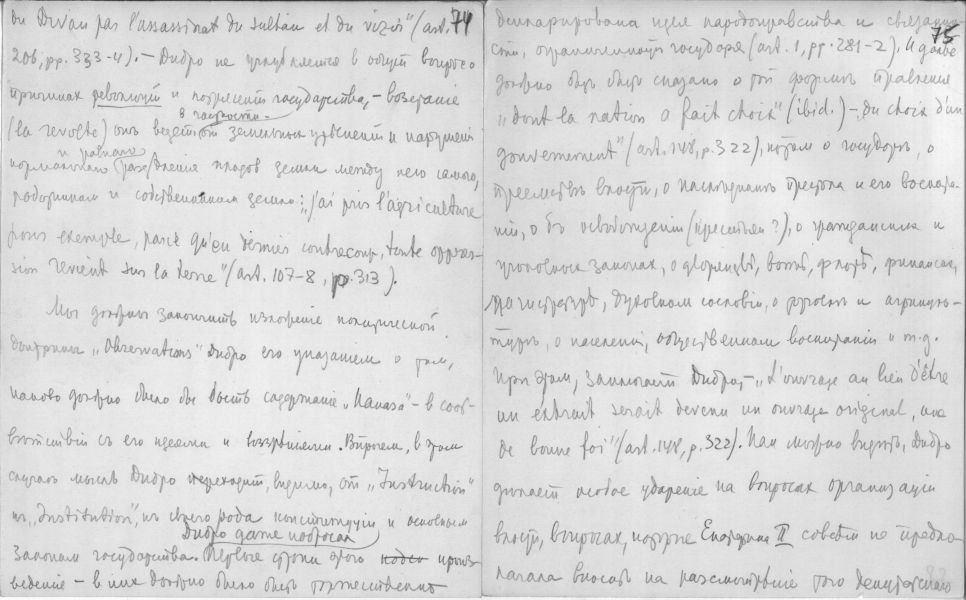 du Divan par l'assassinat du sultan et du vizir" (art. 74
206, pp. 333-4). — Дидро не углубляется в общий вопрос о
причинах революций и потрясений государства, – возстание
в частности
(la révolte) он ведет от земельных утеснений и нарушений
и равнаго
нормальнаго (раз)деления плодов земли между него самого,
работником и собственником земли: „j'ai pris l'agriculture
pour exemple, parce qu'en dernier contrecoup, toute oppres-
sion revient sur la terre" (art. 107-8, p. 313).
Мы должны закончить изложение политической
доктрины „Observations" Дидро его указанием о том,
каково должно было бы быть содержание „Наказа" – в соот-
ветствии с его идеями и воззрениями. Впрочем, в этом
случае мысль Дидро переходит, видимо, от „Instruction"
к „Institution", к своего рода конституции и основным
Дидро даже набросал
законам государства. Первые строки этого произ-
ведения – в них должно было быть торжественно
75
декларирована идея народоправства и связанно-
сти, ограниченности государя (art. 1, pp. 281-2). И далее
должно было быть сказано о той форме правления
„dont la nation a fait choix" (ibid.) – „du choix d'un
gouvernement" (art. 148, p. 322), потом о государе, о
преемстве власти, о наследнике престола и его воспита-
нии, о б освобождении (крестьян?), о гражданских и
уголовных законах, о дворянстве, войске, флоте, финансах,
магистратуре, духовном сословии, о ремеслах и агрикуль-
туре, о населении, общественном воспитании и т.д.
При этом, заключает Дидро, – „L'ouvrage au lieu d'être
un extrait serait devenu un ouvrage original, un
de bonne foi" (art. 148, p. 322). Как можно видеть, Дидро
делает особое ударение на вопросах организации
власти, вопросах, которые Екатерина II совсем не предпо-
лагала вносить на рассмотрение того депутатского